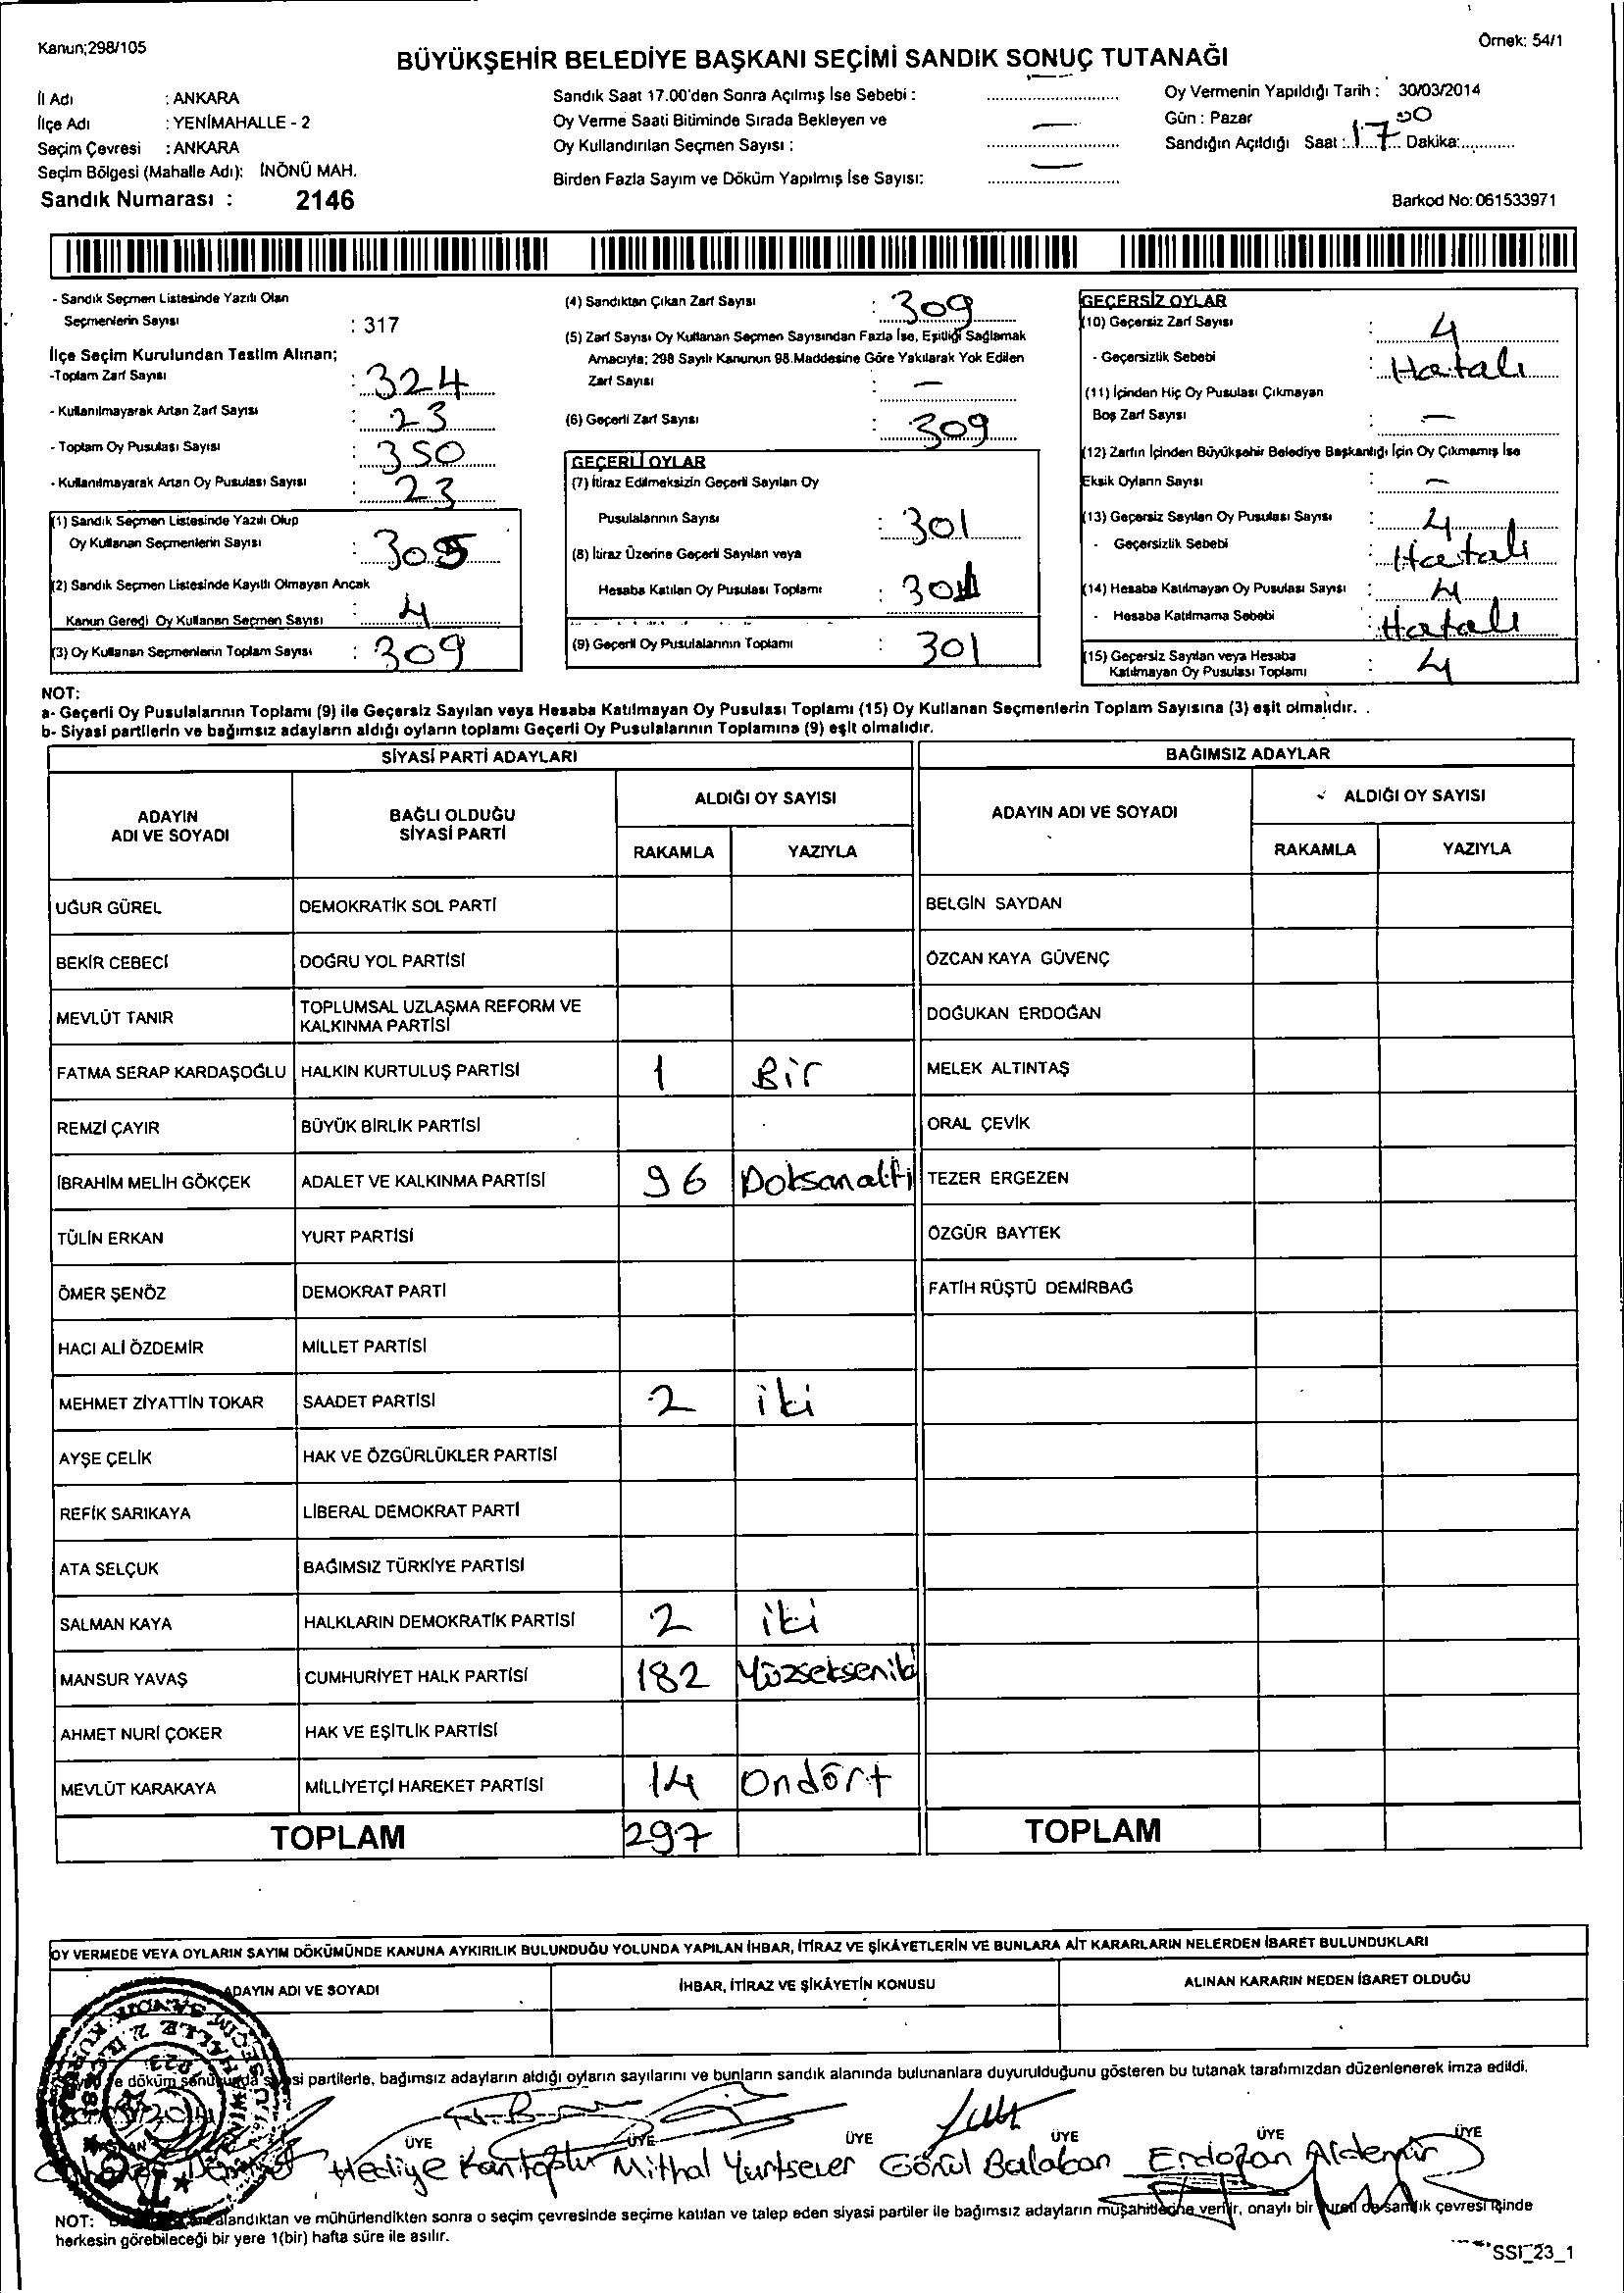 Kanun;298/105
Örnek: 54/1
BÜYÜKŞEHİR BELEDİYE BAŞKANI SEÇİMİ SANDIK SONUÇ TUTANAĞI
İl Adı : ANKARA
İlçe Adı : YENİMAHALLE - 2
Seçim Çevresi : ANKARA
Seçim Bölgesi (Mahalle Adı): İNÖNÜ MAH.
Sandık Numarası : 2146
Sandık Saat 17.00'den Sonra Açılmış İse Sebebi : —
Oy Verme Saati Bitiminde Sırada Bekleyen ve
Oy Kullandırılan Seçmen Sayısı : —
Birden Fazla Sayım ve Döküm Yapılmış İse Sayısı: —
Oy Vermenin Yapıldığı Tarih : 30/03/2014
Gün : Pazar
Sandığın Açıldığı Saat : 17 Dakika: 00
Barkod No: 061533971
- Sandık Seçmen Listesinde Yazılı Olan
Seçmenlerin Sayısı : 317
İlçe Seçim Kurulundan Teslim Alınan;
-Toplam Zarf Sayısı : 324
- Kullanılmayarak Artan Zarf Sayısı : 23
- Toplam Oy Pusulası Sayısı : 350
- Kullanılmayarak Artan Oy Pusulası Sayısı : 23
(1) Sandık Seçmen Listesinde Yazılı Olup
Oy Kullanan Seçmenlerin Sayısı : 305
(2) Sandık Seçmen Listesinde Kayıtlı Olmayan Ancak
Kanun Gereği Oy Kullanan Seçmen Sayısı : 4
(3) Oy Kullanan Seçmenlerin Toplam Sayısı : 309
(4) Sandıktan Çıkan Zarf Sayısı : 309
(5) Zarf Sayısı Oy Kullanan Seçmen Sayısından Fazla İse, Eşitliği Sağlamak
Amacıyla; 298 Sayılı Kanunun 98.Maddesine Göre Yakılarak Yok Edilen
Zarf Sayısı : —
(6) Geçerli Zarf Sayısı : 309
GEÇERLİ OYLAR
(7) İtiraz Edilmeksizin Geçerli Sayılan Oy
Pusulalarının Sayısı : 301
(8) İtiraz Üzerine Geçerli Sayılan veya
Hesaba Katılan Oy Pusulası Toplamı : 301
(9) Geçerli Oy Pusulalarının Toplamı : 301
GEÇERSİZ OYLAR
(10) Geçersiz Zarf Sayısı : 4
- Geçersizlik Sebebi : Hatalı
(11) İçinden Hiç Oy Pusulası Çıkmayan
Boş Zarf Sayısı : —
(12) Zarfın İçinden Büyükşehir Belediye Başkanlığı İçin Oy Çıkmamış İse
Eksik Oyların Sayısı : —
(13) Geçersiz Sayılan Oy Pusulası Sayısı : 4
- Geçersizlik Sebebi : Hatalı
(14) Hesaba Katılmayan Oy Pusulası Sayısı : 4
- Hesaba Katılmama Sebebi : Hatalı
(15) Geçersiz Sayılan veya Hesaba
Katılmayan Oy Pusulası Toplamı : 4
NOT:
a- Geçerli Oy Pusulalarının Toplamı (9) ile Geçersiz Sayılan veya Hesaba Katılmayan Oy Pusulası Toplamı (15) Oy Kullanan Seçmenlerin Toplam Sayısına (3) eşit olmalıdır.
b- Siyasi partilerin ve bağımsız adayların aldığı oyların toplamı Geçerli Oy Pusulalarının Toplamına (9) eşit olmalıdır.
SİYASİ PARTİ ADAYLARI
ADAYIN
ADI VE SOYADI
BAĞLI OLDUĞU
SİYASİ PARTİ
ALDIĞI OY SAYISI
RAKAMLA YAZIYLA
UĞUR GÜREL DEMOKRATİK SOL PARTİ
BEKİR CEBECİ DOĞRU YOL PARTİSİ
MEVLÜT TANIR TOPLUMSAL UZLAŞMA REFORM VE
KALKINMA PARTİSİ
FATMA SERAP KARDAŞOĞLU HALKIN KURTULUŞ PARTİSİ 1 Bir
REMZİ ÇAYIR BÜYÜK BİRLİK PARTİSİ
İBRAHİM MELİH GÖKÇEK ADALET VE KALKINMA PARTİSİ 96 Doksanaltı
TÜLİN ERKAN YURT PARTİSİ
ÖMER ŞENÖZ DEMOKRAT PARTİ
HACI ALİ ÖZDEMİR MİLLET PARTİSİ
MEHMET ZİYATTİN TOKAR SAADET PARTİSİ 2 iki
AYŞE ÇELİK HAK VE ÖZGÜRLÜKLER PARTİSİ
REFİK SARIKAYA LİBERAL DEMOKRAT PARTİ
ATA SELÇUK BAĞIMSIZ TÜRKİYE PARTİSİ
SALMAN KAYA HALKLARIN DEMOKRATİK PARTİSİ 2 iki
MANSUR YAVAŞ CUMHURİYET HALK PARTİSİ 182 Yüzseksenik
AHMET NURİ ÇOKER HAK VE EŞİTLİK PARTİSİ
MEVLÜT KARAKAYA MİLLİYETÇİ HAREKET PARTİSİ 14 Ondört
TOPLAM 297
BAĞIMSIZ ADAYLAR
ADAYIN ADI VE SOYADI
ALDIĞI OY SAYISI
RAKAMLA YAZIYLA
BELGİN SAYDAN
ÖZCAN KAYA GÜVENÇ
DOĞUKAN ERDOĞAN
MELEK ALTINTAŞ
ORAL ÇEVİK
TEZER ERGEZEN
ÖZGÜR BAYTEK
FATİH RÜŞTÜ DEMİRBAĞ
TOPLAM
OY VERMEDE VEYA OYLARIN SAYIM DÖKÜMÜNDE KANUNA AYKIRILIK BULUNDUĞU YOLUNDA YAPILAN İHBAR, İTİRAZ VE ŞİKÂYETLERİN VE BUNLARA AİT KARARLARIN NELERDEN İBARET BULUNDUKLARI
ADAYIN ADI VE SOYADI
İHBAR, İTİRAZ VE ŞİKÂYETİN KONUSU
ALINAN KARARIN NEDEN İBARET OLDUĞU
döküm sonucunda siyasi partilerle, bağımsız adayların aldığı oyların sayılarını ve bunların sandık alanında bulunanlara duyurulduğunu gösteren bu tutanak tarafımızdan düzenlenerek imza edildi.
ÜYE ÜYE ÜYE ÜYE ÜYE ÜYE
Hediye Kantoplu Mithal Yurtsever Gönül Balaban Erdoğan Aldemir
NOT: andıktan ve mühürlendikten sonra o seçim çevresinde seçime katılan ve talep eden siyasi partiler ile bağımsız adayların müşahitlerine verilir, onaylı bir sureti de sandık çevresi içinde
herkesin görebileceği bir yere 1(bir) hafta süre ile asılır.
SSI_23_1